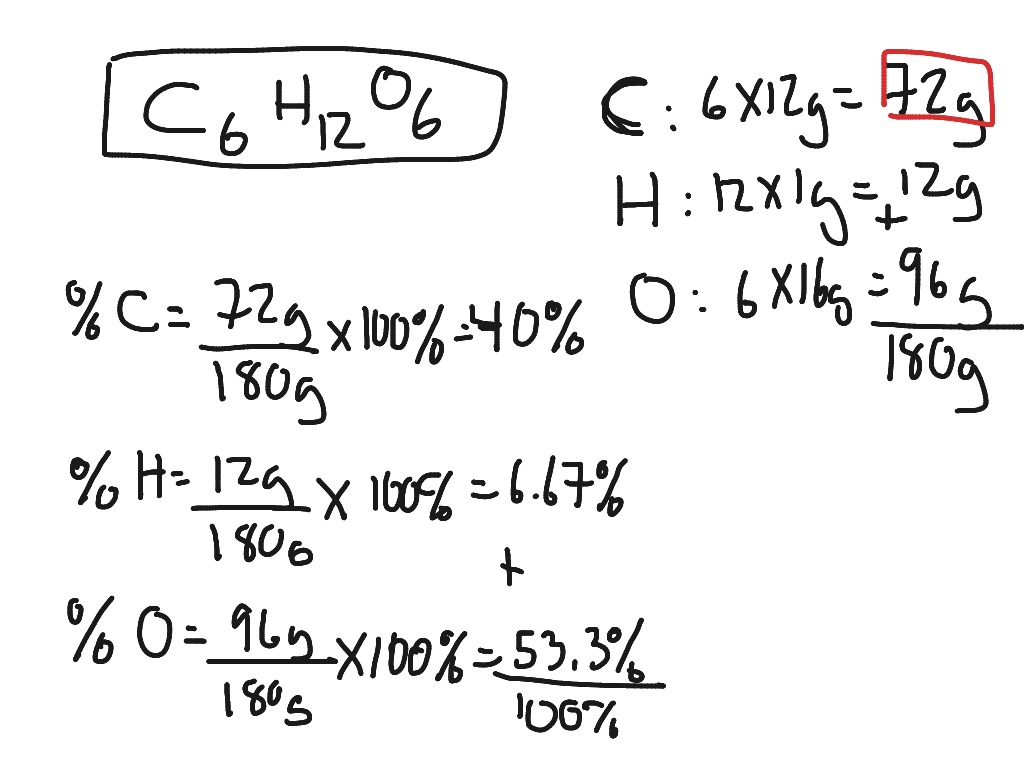 C6H12O6
C: 6X12g=72g
H: 12X1g=12g
+
O: 6X16g=96g
180g
%C=72g/180gx100%=40%
%H=12g/180gX100%=6.67%
+
%O=96g/180gX100%=53.3%
100%